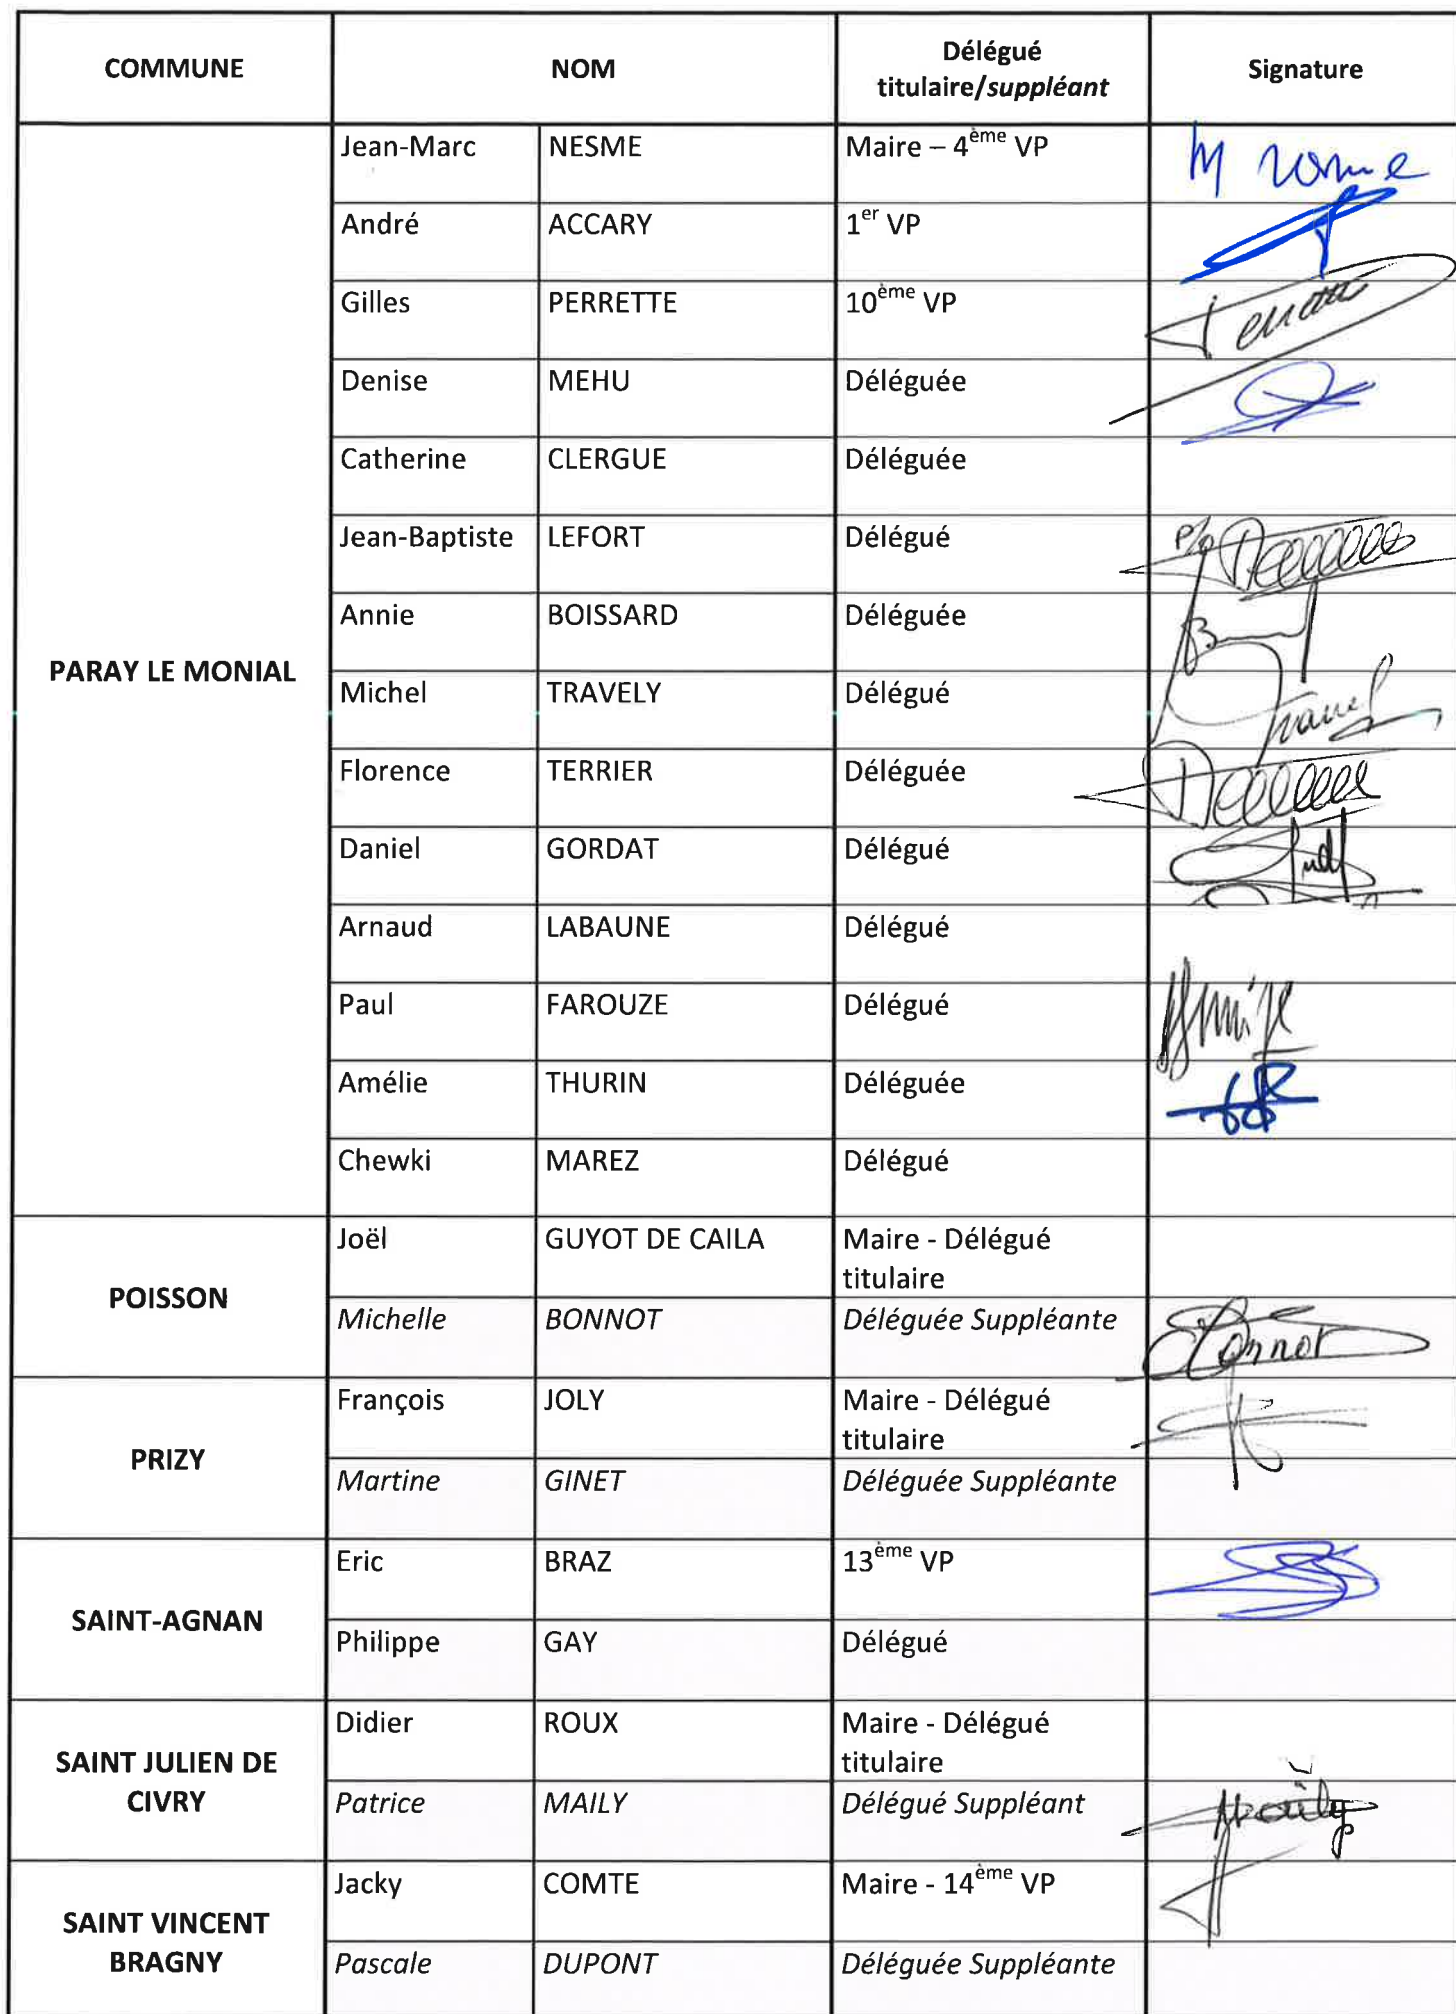 COMMUNE NOM Délégué titulaire/suppléant Signature
PARAY LE MONIAL
Jean-Marc NESME Maire – 4ème VP
André ACCARY 1er VP
Gilles PERRETTE 10ème VP
Denise MEHU Déléguée
Catherine CLERGUE Déléguée
Jean-Baptiste LEFORT Délégué P/o
Annie BOISSARD Déléguée
Michel TRAVELY Délégué
Florence TERRIER Déléguée
Daniel GORDAT Délégué
Arnaud LABAUNE Délégué
Paul FAROUZE Délégué
Amélie THURIN Déléguée
Chewki MAREZ Délégué
POISSON
Joël GUYOT DE CAILA Maire - Délégué titulaire
Michelle BONNOT Déléguée Suppléante Bonnot
PRIZY
François JOLY Maire - Délégué titulaire
Martine GINET Déléguée Suppléante
SAINT-AGNAN
Eric BRAZ 13ème VP
Philippe GAY Délégué
SAINT JULIEN DE CIVRY
Didier ROUX Maire - Délégué titulaire
Patrice MAILY Délégué Suppléant
SAINT VINCENT BRAGNY
Jacky COMTE Maire - 14ème VP
Pascale DUPONT Déléguée Suppléante